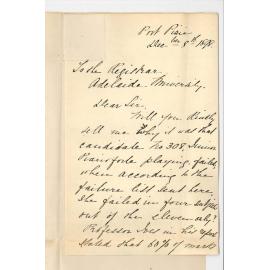 Port Pirie
Dec 8th 1898.
To the Registrar
Adelaide University.
Dear Sir,
Will you kindly
tell me why it was that
candidate No 308, Junior
Pianoforte playing, failed
when according to the
failure list sent here,
she failed in four subjects
out of the eleven only?
Professor Ives in his report
stated that 60% of marks